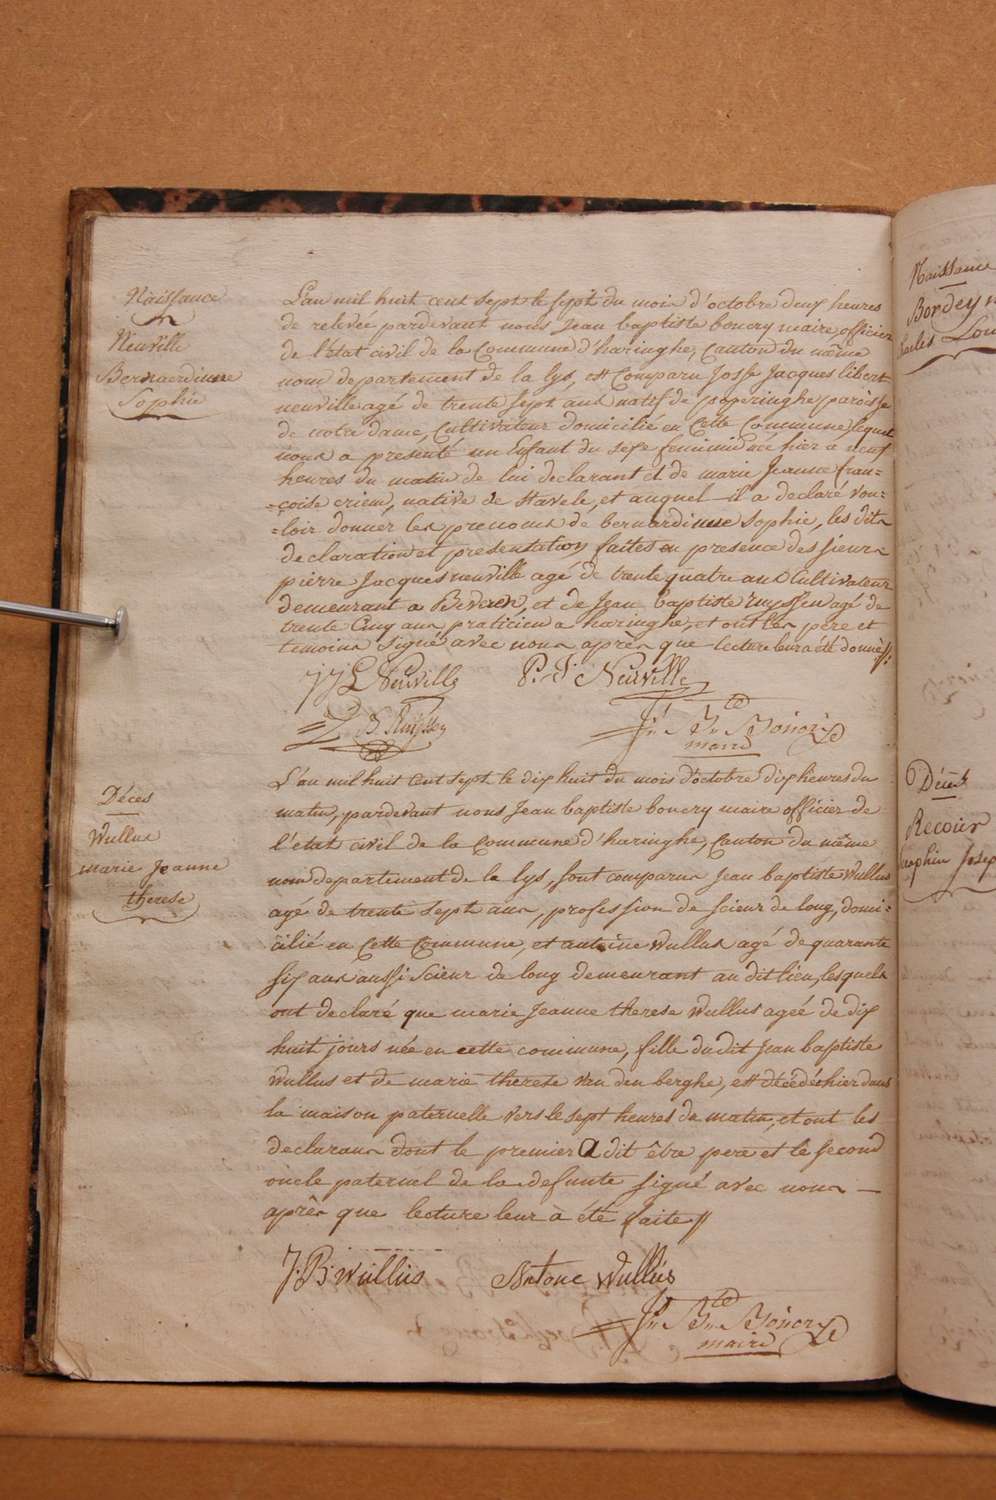 Naissance
Neuville
Bernaerdinne
Sophie
L'an mil huit cent sept le sept du mois d'octobre deux heures
de relevée pardevant nous Jean baptiste boncry maire officier
de l'état civil de la Commune d'haringhe, Canton du même
nom departement de la lys, est Comparu Josse Jacques libert
neuville agé de trente sept ans natif de poperinghe paroisse
de notre dame, Cultivateur domicilié en Cette Commune, lequel
nous a presenté un Enfant du sexe feminin né hier a neuf
heures du matin de lui declarant et de marie Jeanne fran=
=çoise criem, native de Stavele, et auquel il a declaré vou=
=loir donner les prenoms de bernardinne Sophie, les dits
declaration et presentation faites en presence des sieurs
pierre Jacques neuville agé de trente quatre ans Cultivateur
demeurant a Beveren, et de Jean baptiste ruyssen agé de
trente Cinq ans praticien a haringhe, et ont les pere et
temoins signé avec nous après que lecture leur a été donnée //:
JJL Neuville P. J. Neuville
J B Ruyssen Jn Bte Boncry
maire
Décès
Wullus
marie Jeanne
therese
L'an mil huit cent sept le dix huit du mois d'octobre dix heures du
matin, pardevant nous Jean baptiste boncry maire officier de
l'état civil de la Commune d'haringhe, Canton du même
nom departement de la lys, sont comparus Jean baptiste Wullus
agé de trente sept ans, profession de scieur de long, domi=
cilié en Cette Commune, et antoine Wullus agé de quarante
six ans aussi scieur de long demeurant au dit lieu, lesquels
ont declaré que marie Jeanne therese Wullus agée de dix
huit jours née en cette commune, fille du dit Jean baptiste
Wullus et de marie therese Van den berghe, est décédée hier dans
la maison paternelle vers le sept heures du matin, et ont les
declarans dont le premier a dit être pere et le second
oncle paternel de la defunte signé avec nous —
après que lecture leur à été faite //
J. B. Wullus Antone Wullus
Jn Bte Boncry
maire
Naissance
Décès
Recour